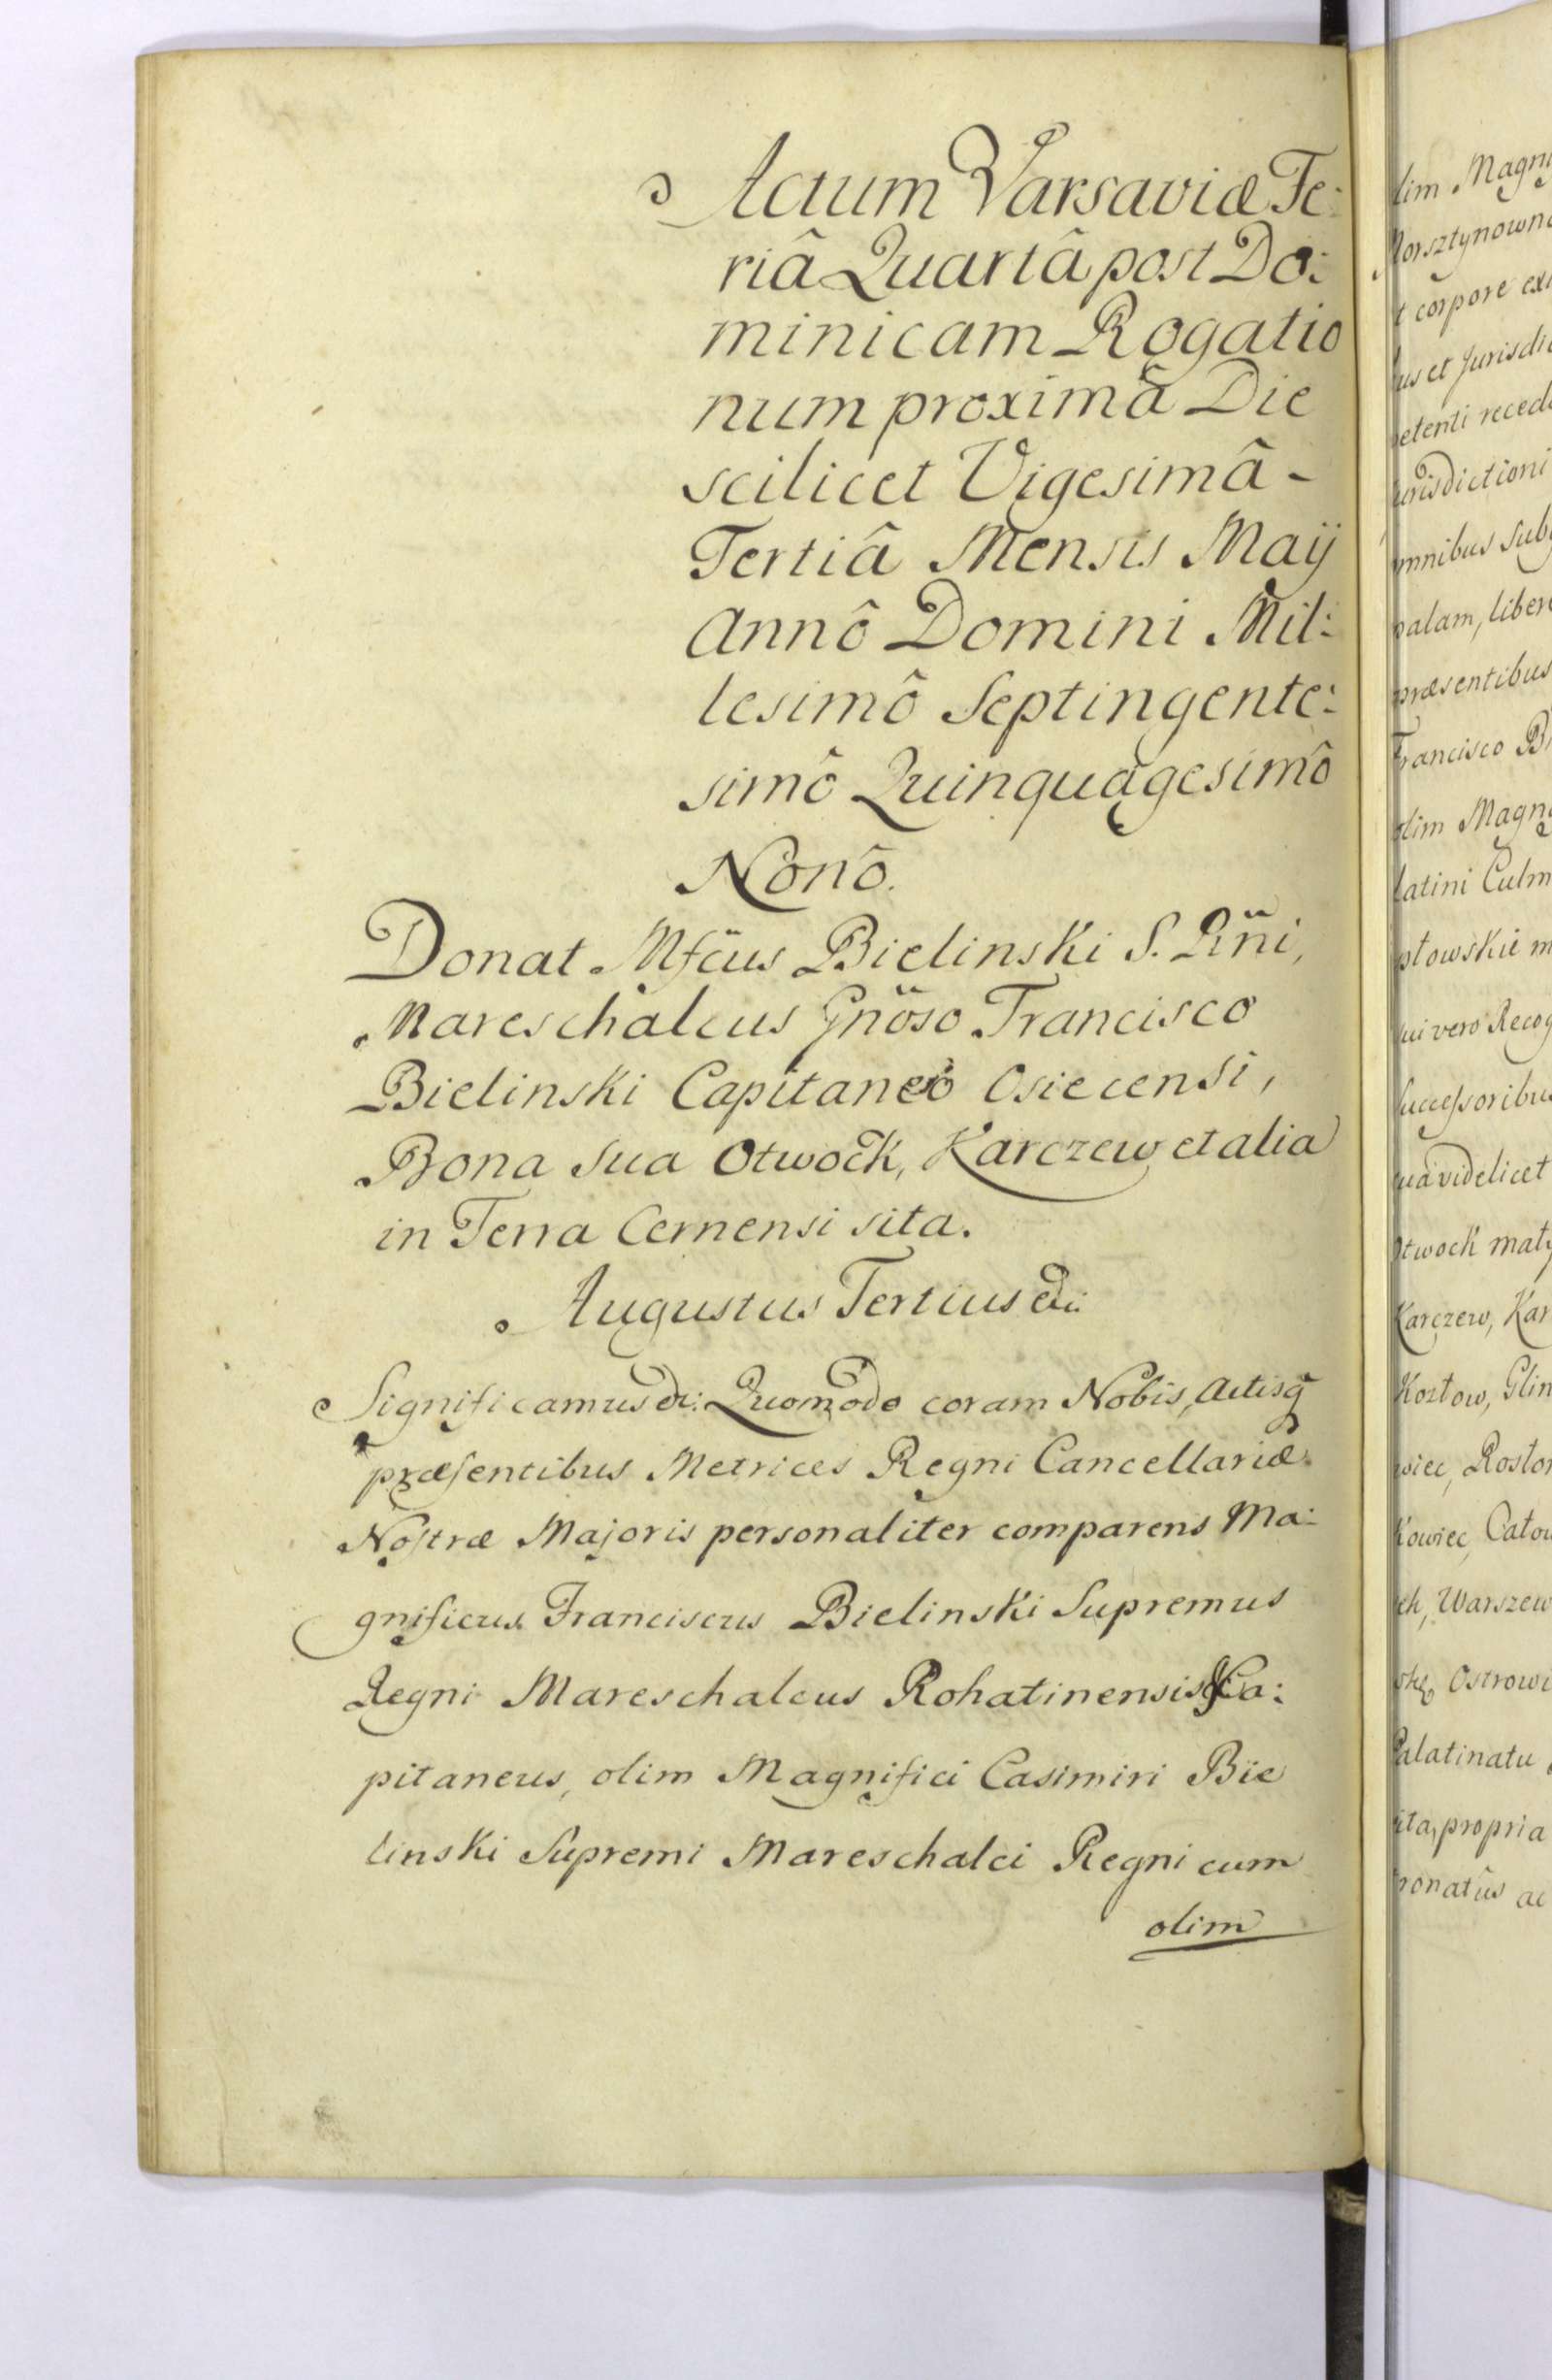 Actum Varsaviæ Fe:
riâ Quartâ post Do:
minicam Rogatio
num proximâ Die
scilicet Vigesimâ -
Tertiâ Mensis Maÿ
Annô Domini Mil:
lesimô Septingente:
simô Quinquagesimô
Nonô.
Donat Mfcus Bielinski S. Rni,
Mareschalcus Gnoso Francisco
Bielinski Capitaneo Osiecensi,
Bona sua Otwock, Karczew et alia
in Terra Cernensi sita.
Augustus Tertius &c:
Significamus &c: Quomodo coram Nobis, Actisq
præsentibus Metrices Regni Cancellariæ
Nostræ Majoris personaliter comparens Ma:
gnificus Franciscus Bielinski Supremus
Regni Mareschalcus Rohatinensis Ca:
pitaneus, olim Magnifici Casimiri Bie
linski Supremi Mareschalci Regni cum
olim
lim Magni
Morsztynowna
t corpore
us et Jurisdi
petenti reced
urisdictioni
omnibus sub
palam, liber
præsentibus
Francisco B
olim Magn
latini Culm
ptowskie m
ui vero Recog
Successoribus
quâ videlicet
Otwock mały
Karczew, Kar
Kozłow, Glin
wiec, Rosto
kowiec, Cało
ch, Warszew
Ostrowi
Palatinatu
ita, propria
tronatûs ac